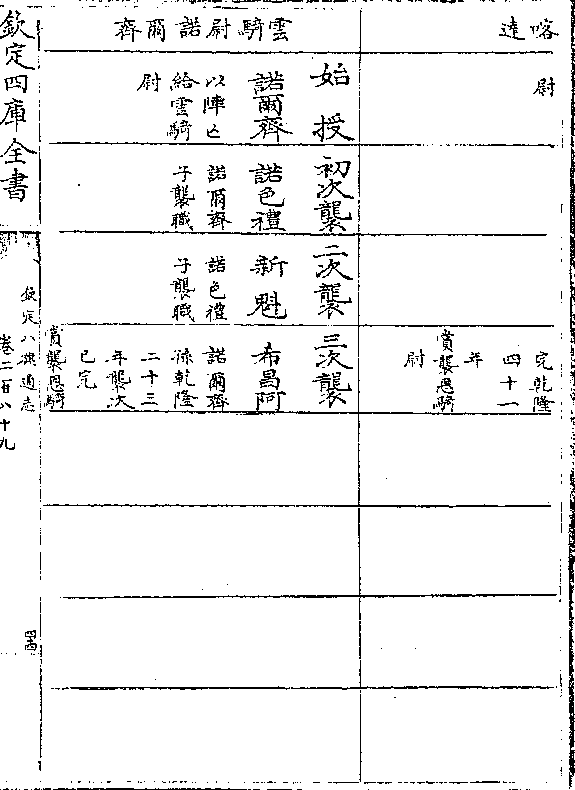 喀
達
尉
完乾隆
四十一
年
賞襲恩騎
尉
雲騎尉諾爾齊
始授
諾爾齊
以陣亡
給雲騎
尉
初次襲
諾色禮
諾爾齊
子襲職
二次襲
新魁
諾色禮
子襲職
三次襲
希昌阿
諾爾齊
孫乾隆
二十三
年襲次
已完
賞襲恩騎
欽定四庫全書
欽定八旗通志
卷二百八十九